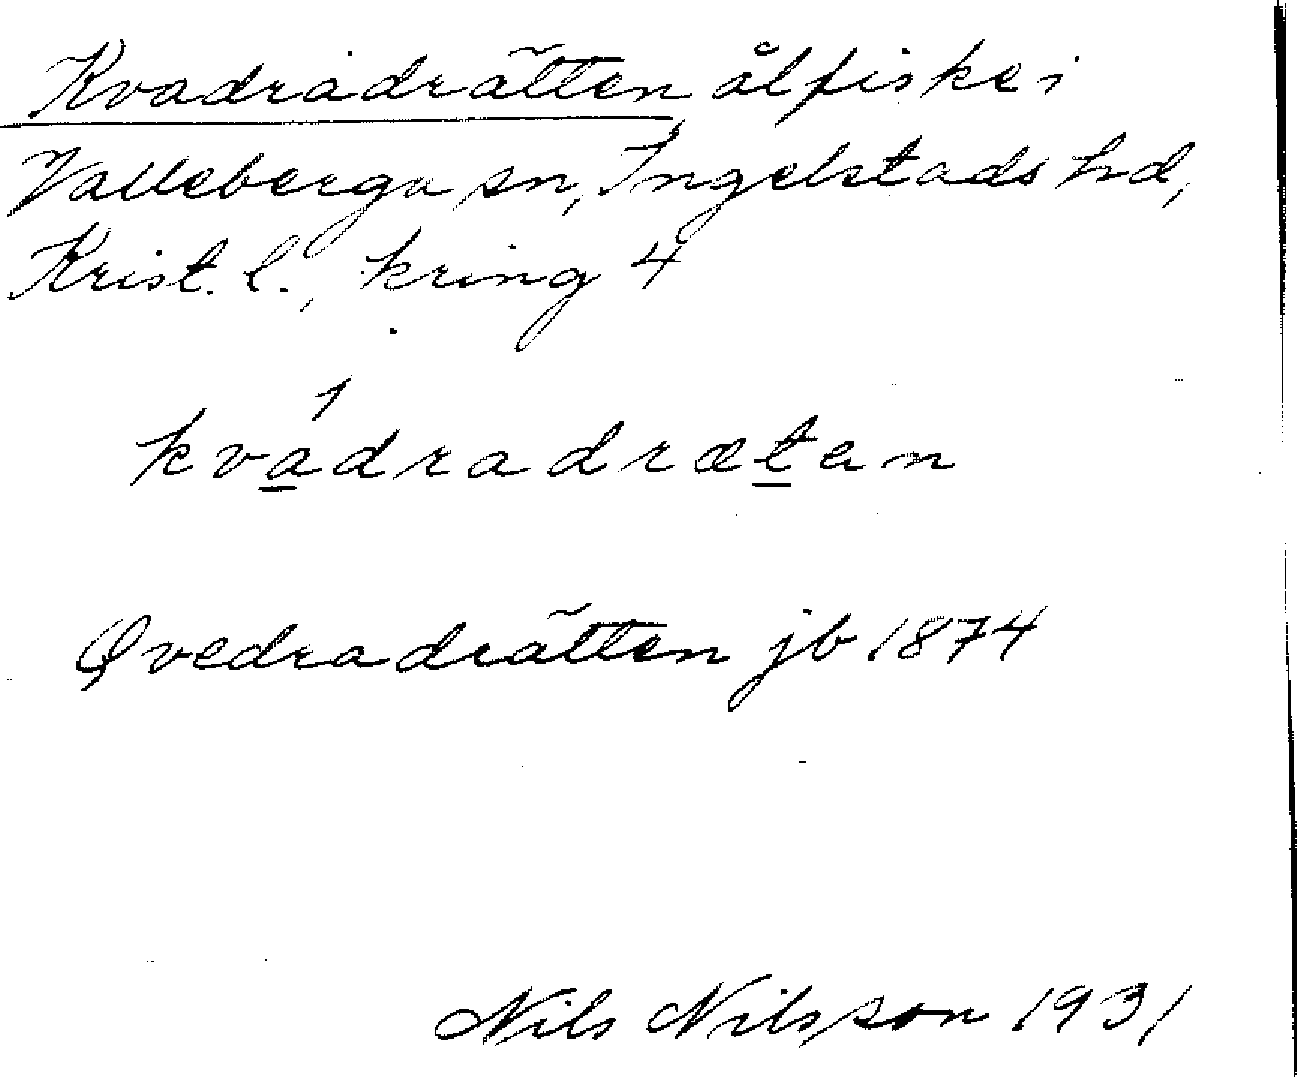 Kvadradrätten ålfiske i
Valleberga sn, Ingelstads hd,
Krist. l., kring 4
kvadradrætan
Qvedradrätten jb 1874
Nils Nilsson 1931